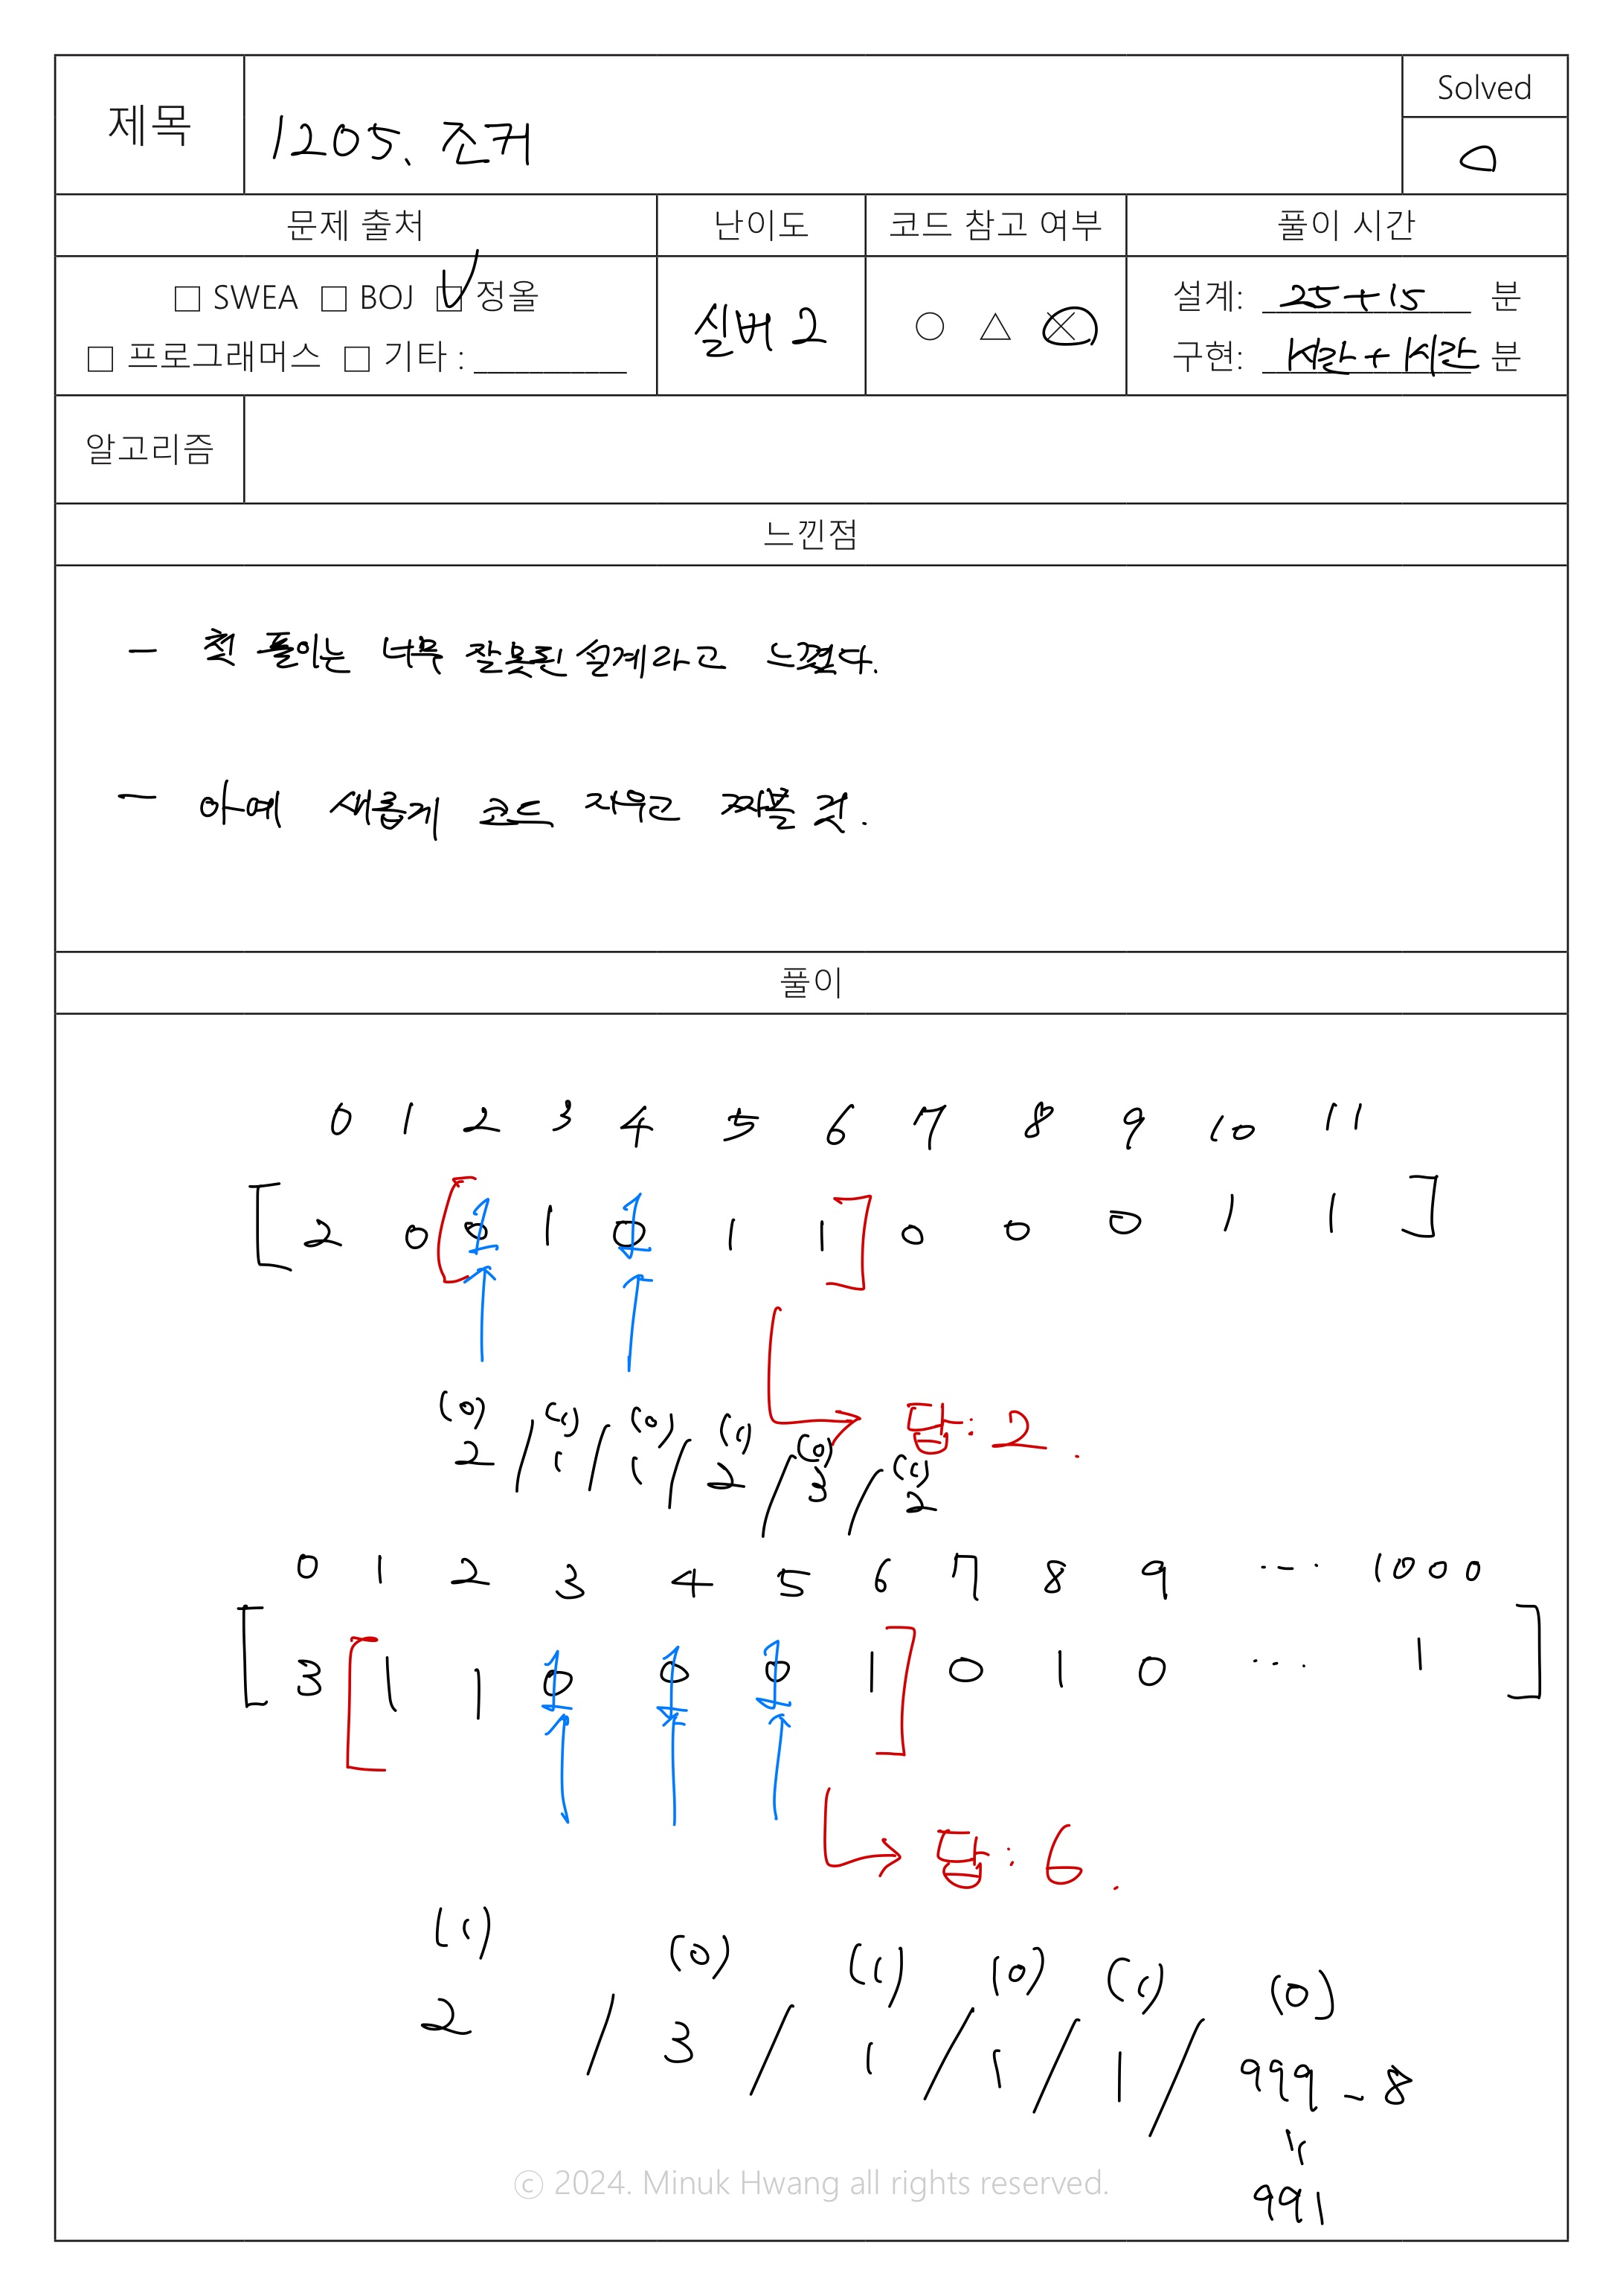 제목
1205. 조커
Solved
문제 출처
난이도
코드 참고 여부
풀이 시간
□ SWEA □ BOJ □ 정올
□ 프로그래머스 □ 기타 : ____________
실버 2
○ △ ×
설계: 25+15 분
구현: 분
알고리즘
느낀점
- 첫 풀이는 너무 잘못된 설계라고 느꼈다.
- 아예 새롭게 코드 지우고 짜볼 것.
풀이
0 1 2 3 4 5 6 7 8 9 10 11
[ 2 0 0 1 0 1 1 ] 0 0 0 1 1 ]
1 1
답: 2.
(0) (1) (0) (1) (0) (1)
2 / 1 / 1 / 2 / 3 / 2
0 1 2 3 4 5 6 7 8 9 ... 1000
[ 3 [ 1 1 0 0 0 1 ] 0 1 0 ... 1 ]
1 1 1
답: 6.
(1) (0) (1) (0) (1) (0)
2 / 3 / 1 / 1 / 1 / 999-8
991
© 2024. Minuk Hwang all rights reserved.